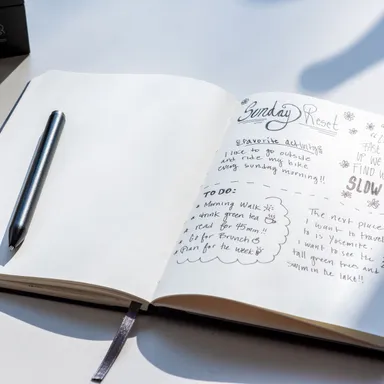 Sunday Reset
Favorite activity:
I like to go outside
and ride my bike
every sunday morning!!
UP WE
FIND
SLOW
TO DO:
Morning Walk
drink green tea
read for 45min!!
Go for Brunch
Plan for the week
The next place
I want to travel
to is Yosemite
I want to see the
tall green trees and
swim in the lake!!